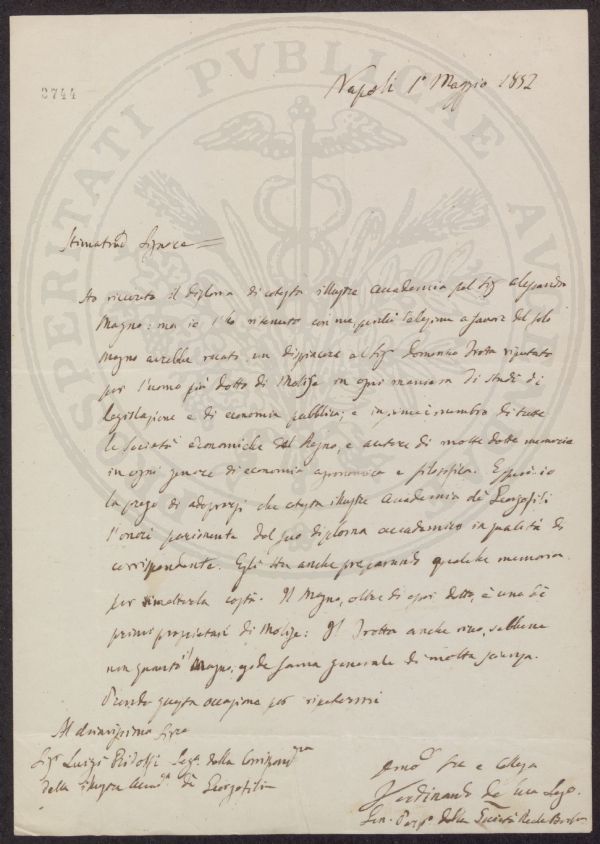 2744
Napoli 1° Maggio 1852
Stimatmo Signore =
Ho ricevuto il diploma di cotesta illustre Accademia pel Sig Alessandro
Magno: ma io l'ho ritenuto con me, perché l'elezione a favore del solo
Magno avrebbe recato un dispiacere al Sigr Domenico Trotta riputato
per l'uomo più dotto di Molise in ogni maniera di studi di
legislazione e di economia pubblica; e membro di tutte
le Società economiche del Regno, e autore di molte dotte memorie
in ogni genere di economia agronomica e filosofica. io
la prego di adoprarsi che cotesta illustre Accademia de' Georgofili
l'onori parimente del suo diploma accademico in qualità di
corrispondente. Egli sta anche preparando qualche memoria
per costà. Il Magno, oltre di esser dotto, è uno de'
primi proprietari di Molise: Il Trotta anche ricco, sebbene
non quanto il Magno, gode fama generale di molta scienza.
Prendo questa occasione per ripetermi
Al chiarissimo Sigre
Sigr Luigi Ridolfi Segr della Corrispondza
della illustre Accad. de' Georgofili
Devmo Sre e Collega
Ferdinando de Luca
Seg. Perp. della Società Reale Borbon
PROSPERITATI PVBLICAE AVGENDAE